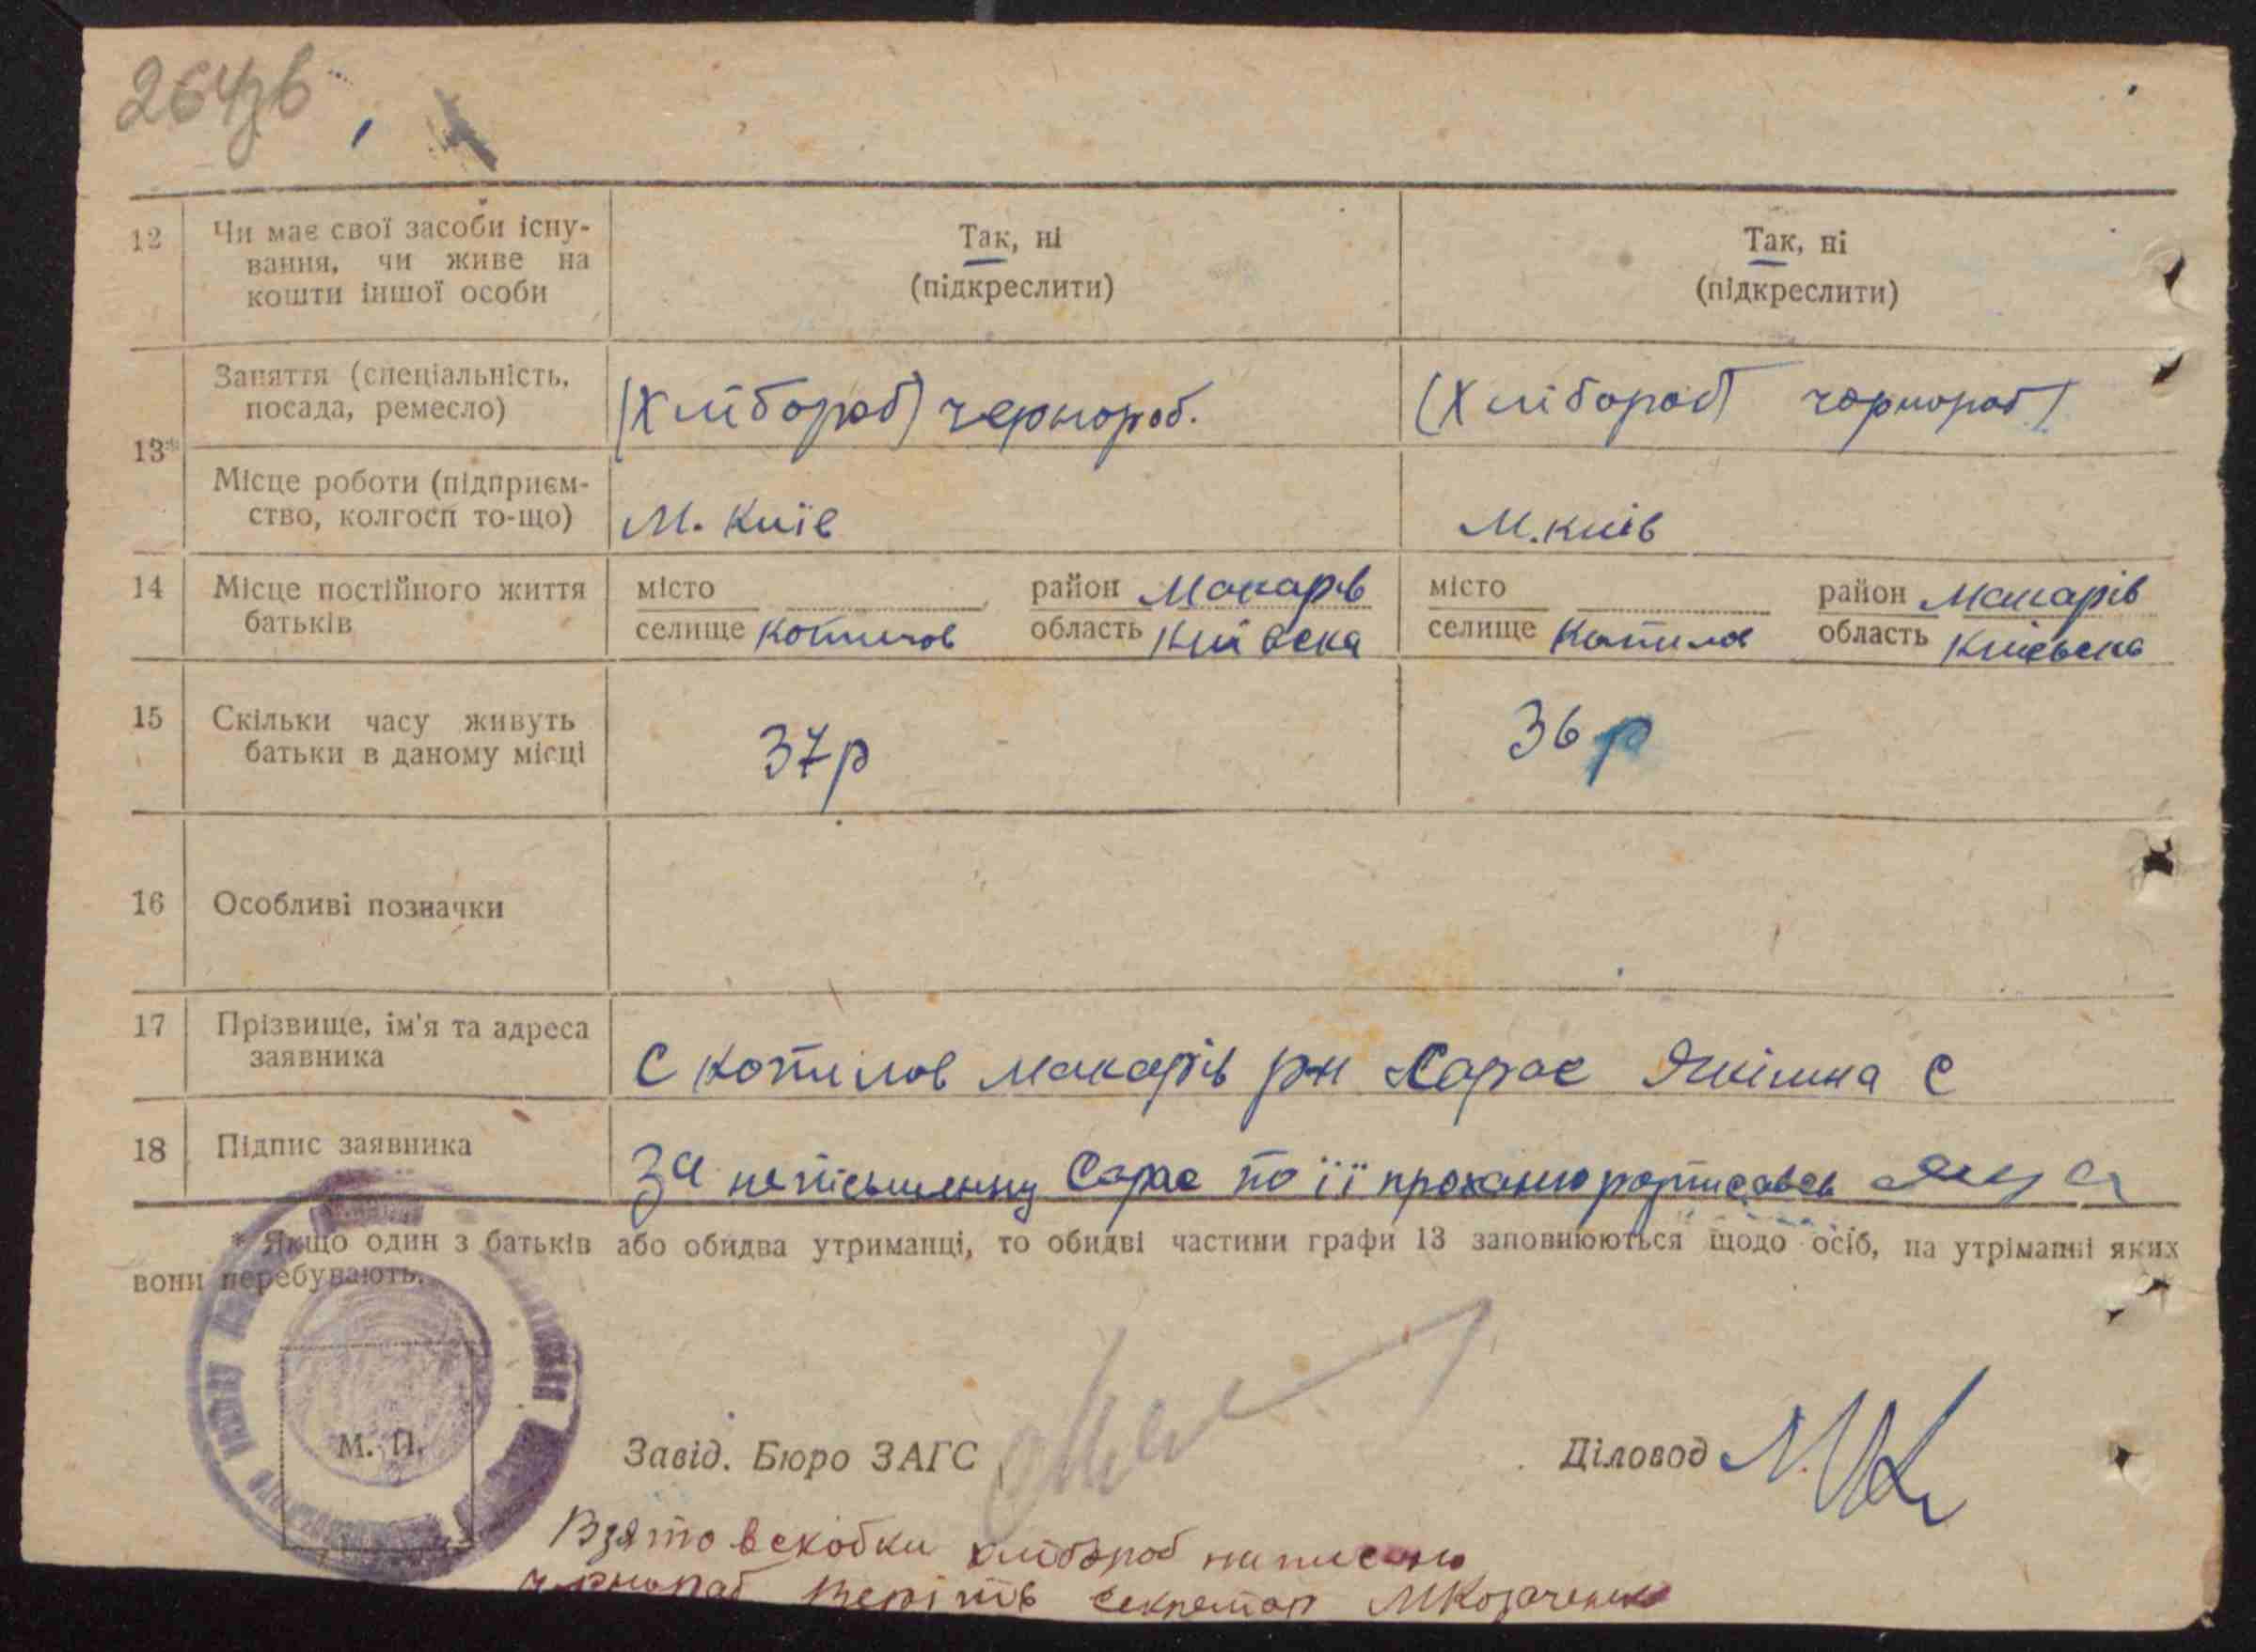 264зв
12 Чи має свої засоби існу- Так, ні Так, ні
вання, чи живе на (підкреслити) (підкреслити)
кошти іншої особи
13* Заняття (спеціальність, (Хлібороб) чернороб. (Хлібороб чорнороб)
посада, ремесло)
Місце роботи (підприєм- М. Київ М. Київ
ство, колгосп то-що)
14 Місце постійного життя місто район Макарів місто район Макарів
батьків селище Копилов область Київска селище Копилов область Києвска
15 Скільки часу живуть 37р 36 р
батьки в даному місці
16 Особливі позначки
17 Прізвище, ім'я та адреса
заявника С Копилов Макарів рн Сарає Якілина С
18 Підпис заявника За неписьменну Сарає по її проханю розписавсь
* Якщо один з батьків або обидва утриманці, то обидві частини графи 13 заповнюються щодо осіб, на утріманні яких
вони перебувають.
М. П. Завід. Бюро ЗАГС Діловод
Взято вскобки хлібороб написано
чорнораб Верітв секретар МКозаченко